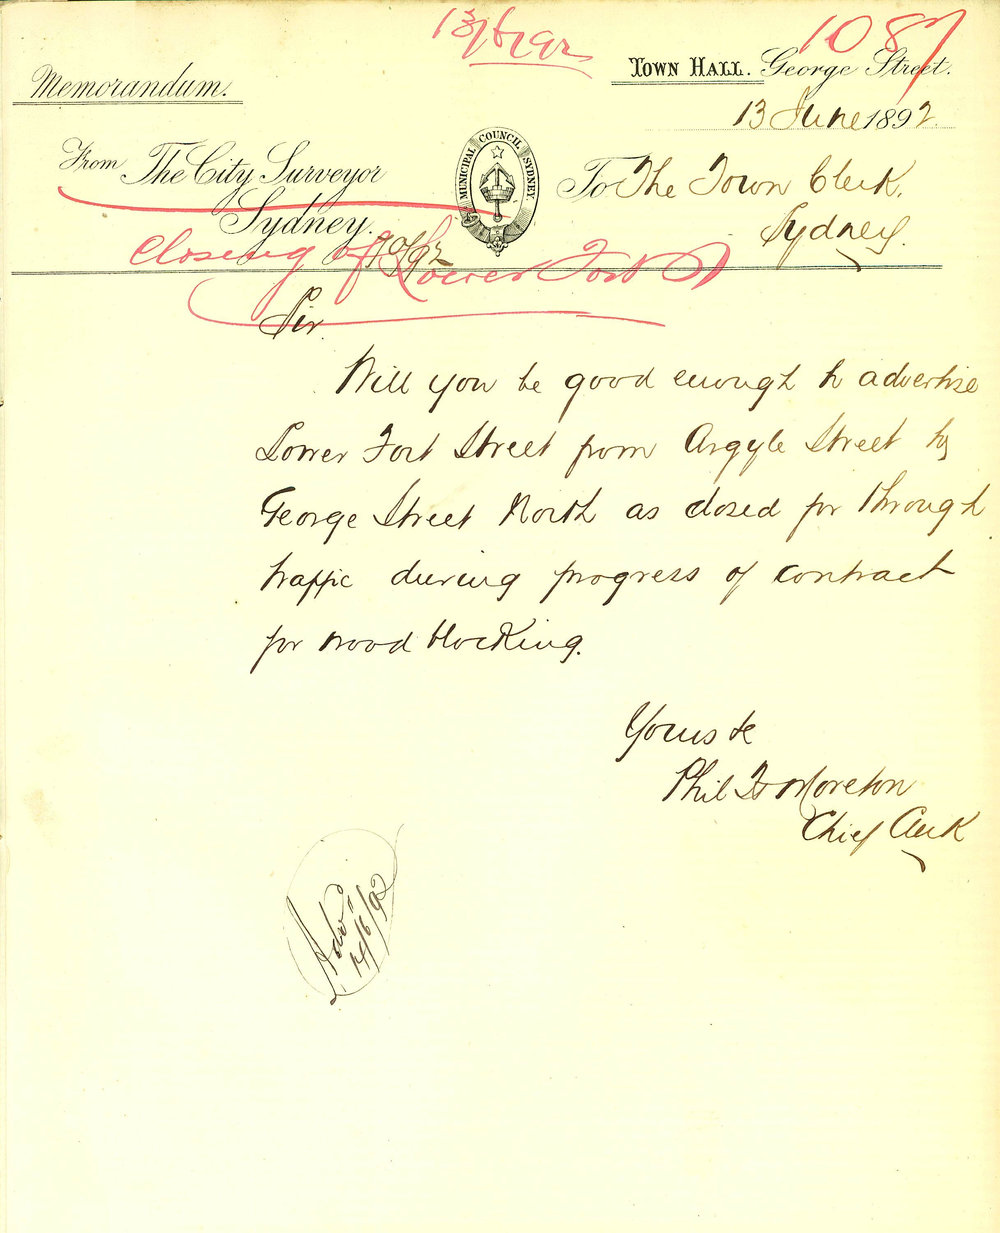 13/6/92
1087
Memorandum.
TOWN HALL. George Street.
13 June 1892
From The City Surveyor
Sydney.
MUNICIPAL COUNCIL SYDNEY
To The Town Clerk.
Sydney.
Closing of Lower Fort St
Sir
Will you be good enough to advertise
Lower Fort Street from Argyle Street to
George Street North as closed for through
traffic during progress of contract
for wood blocking.
Yours &c
Phil Moreton
Chief Clerk
Adv.
14/6/92